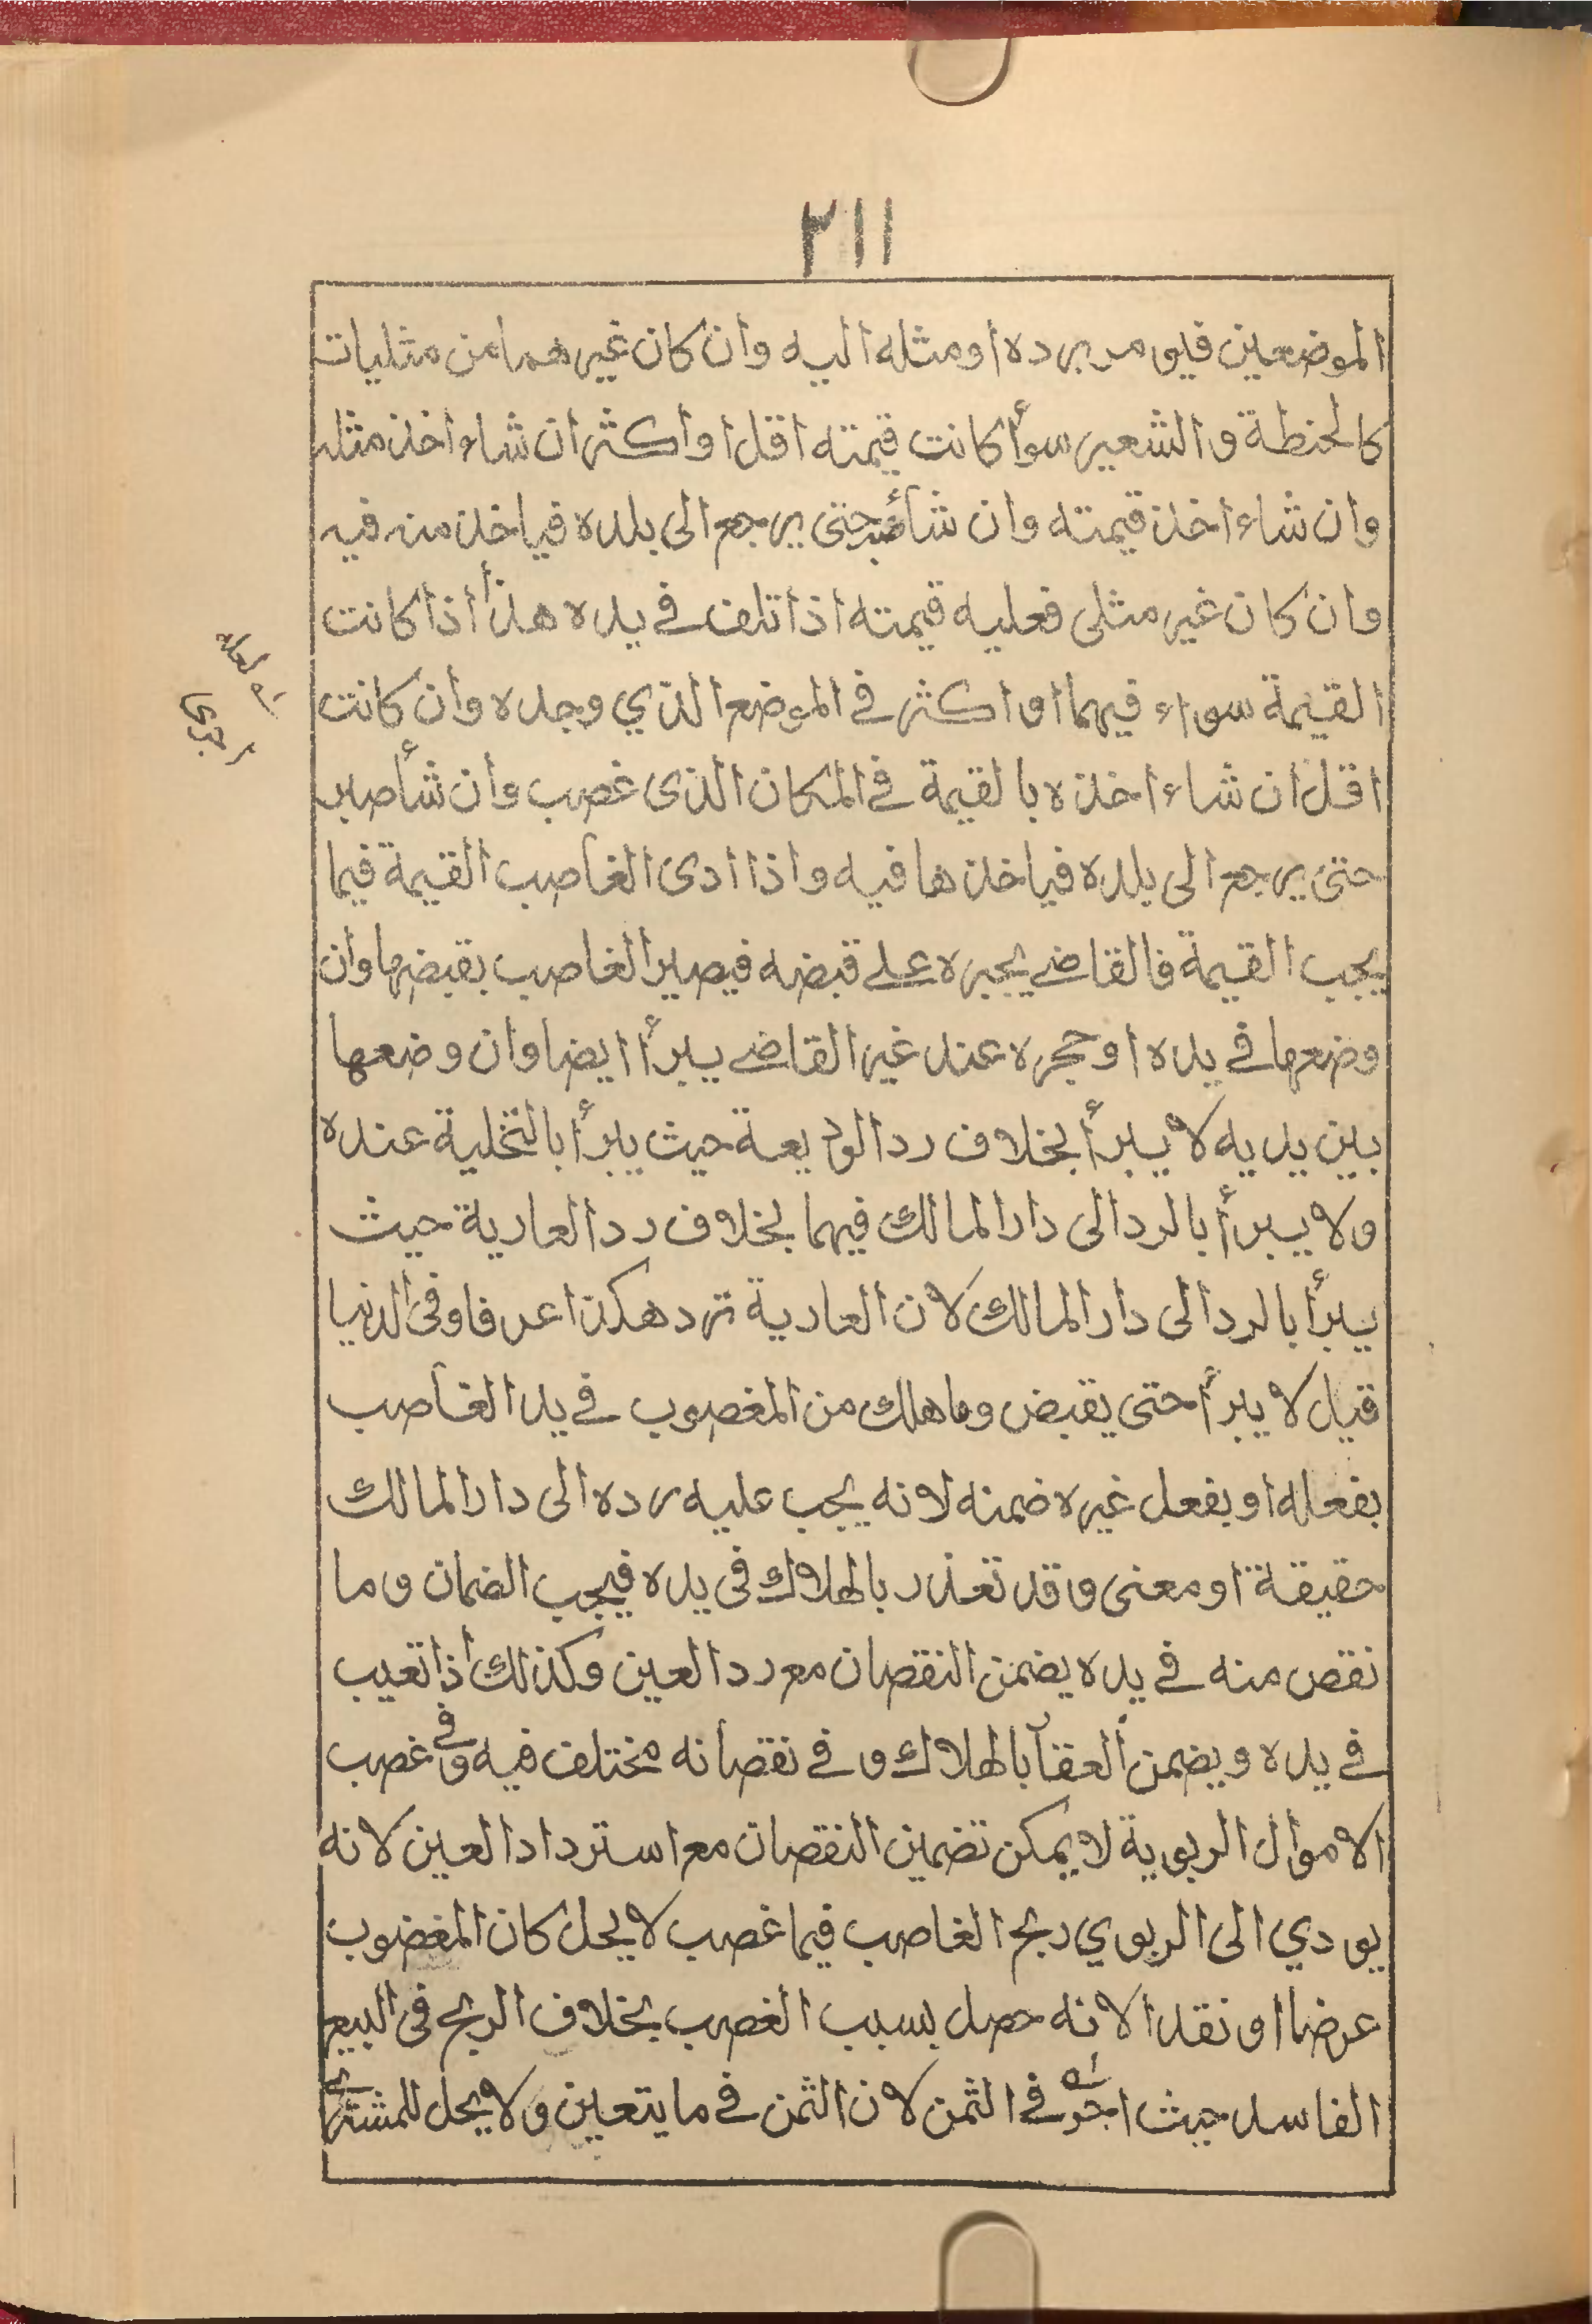 ٢١١
الموضعين فيومر برده او مثله اليه وان كان غيرهما من مثليات
كالحنطة والشعير سوأ كانت قيمته اقل او اكثر ان شاء اخذ مثله
وان شاء اخذ قيمته وان شأ صبر حتى يرجع الى بلده فياخذ منه فيه
وان كان غير مثلى فعليه قيمته اذا تلف فے يده هذا اذا كانت
القيمة سواء فيهما او اكثر فے الموضع الذي وجده وان كانت
اقل ان شاء اخذه بالقيمة فے المكان الذى غصب وان شأ صبر
حتى يرجع الى بلده فياخذها فيه واذا ادى الغاصب القيمة فيما
يجب القيمة فالقاضے يجبره علے قبضه فيصير الغاصب بقبضها وان
وضعها فے يده او حجره عند غير القاضے يبرأ ايضا وان وضعها
بين يديه لا يبرأ بخلاف رد الوديعة حيث يبرأ بالتخلية عنده
ولا يبرأ بالرد الى دار المالك فيهما بخلاف رد العارية حيث
يبرأ بالرد الى دار المالك لان العارية ترد هكذا عرفا وفى الدنيا
قيل لا يبرأ حتى يقبض وما هلك من المغصوب فے يد الغاصب
بفعله او بفعل غيره ضمنه لانه يجب عليه رده الى دار المالك
حقيقة او معنى وقد تعذر بالهلاك فى يده فيجب الضمان وما
نقص منه فے يده يضمن النقصان مع رد العين وكذلك اذا تعيب
فے يده ويضمن العقآ بالهلاك وفے نقصانه مختلف فيه وفے غصب
الاموال الربوية لا يمكن تضمين النقصان مع استرداد العين لانه
يودي الى الربوي ربح الغاصب فيما غصب لا يحل كان المغضوب
عرضا او نقدا لانه حصل بسبب الغصب بخلاف الربح فى البيع
الفاسد حيث فے الثمن لان الثمن فے ما يتعين ولا يحل للمشترى